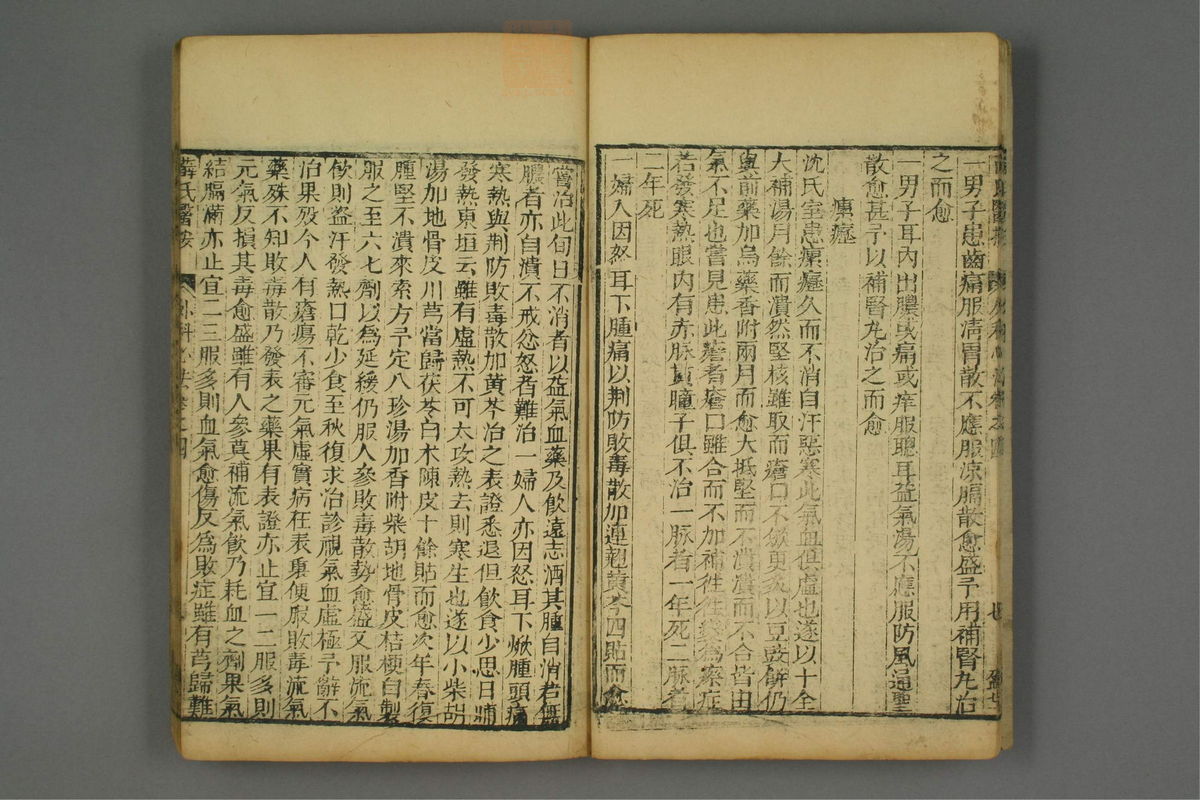 一男子患齒痛服清胃散不應服涼膈散愈盛予用補腎丸治
之而愈
一男子耳内出膿或痛或痒服聰耳益氣湯不應服防風通聖
散愈甚予以補腎丸治之而愈
瘰癧
沈氏室患瘰癧久而不消自汗惡寒此氣血俱虚也遂以十全
大補湯月餘而潰然堅核雖取而瘡口不斂更灸以豆豉餅仍
與前藥加烏藥香附兩月而愈大抵堅而不潰潰而不合皆由
氣不足也嘗見患此瘡者瘡口雖合而不加補往往變爲瘵症
若發寒熱眼内有赤脉貫瞳子俱不治一脉者一年死二脉者
二年死
一婦人因怒耳下腫痛以荆防敗毒散加連翹黄芩四貼而愈
嘗治此旬日不消者以益氣血藥及飲遠志酒其腫自消若無
膿者亦自潰不戒忿怒者難治一婦人亦因怒耳下㷄腫頭痛
寒熱與荆防敗毒散加黄芩治之表證悉退但飲食少思日晡
發熱東垣云雖有虚熱不可大攻熱去則寒生也遂以小柴胡
湯加地骨皮川芎當歸茯苓白术陳皮十餘貼而愈次年春復
腫堅不潰來索方予定八珍湯加香附柴胡地骨皮桔梗自製
服之至六七劑以爲延緩仍服人參敗毒散勢愈盛又服流氣
飲則盗汗發熱口乾少食至秋復求治診視氣血虚極予辭不
治果殁今人有瘡瘍不審元氣虚實病在表裏便服敗毒流氣
藥殊不知敗毒散乃發表之藥果有表證亦止宜一二服多則
元氣反損其毒愈盛雖有人參莫補流氣飲乃耗血之劑果氣
結膈滿亦止宜二三服多則血氣愈傷反爲敗症雖有芎歸難
薛氏醫按 外科心法卷之四